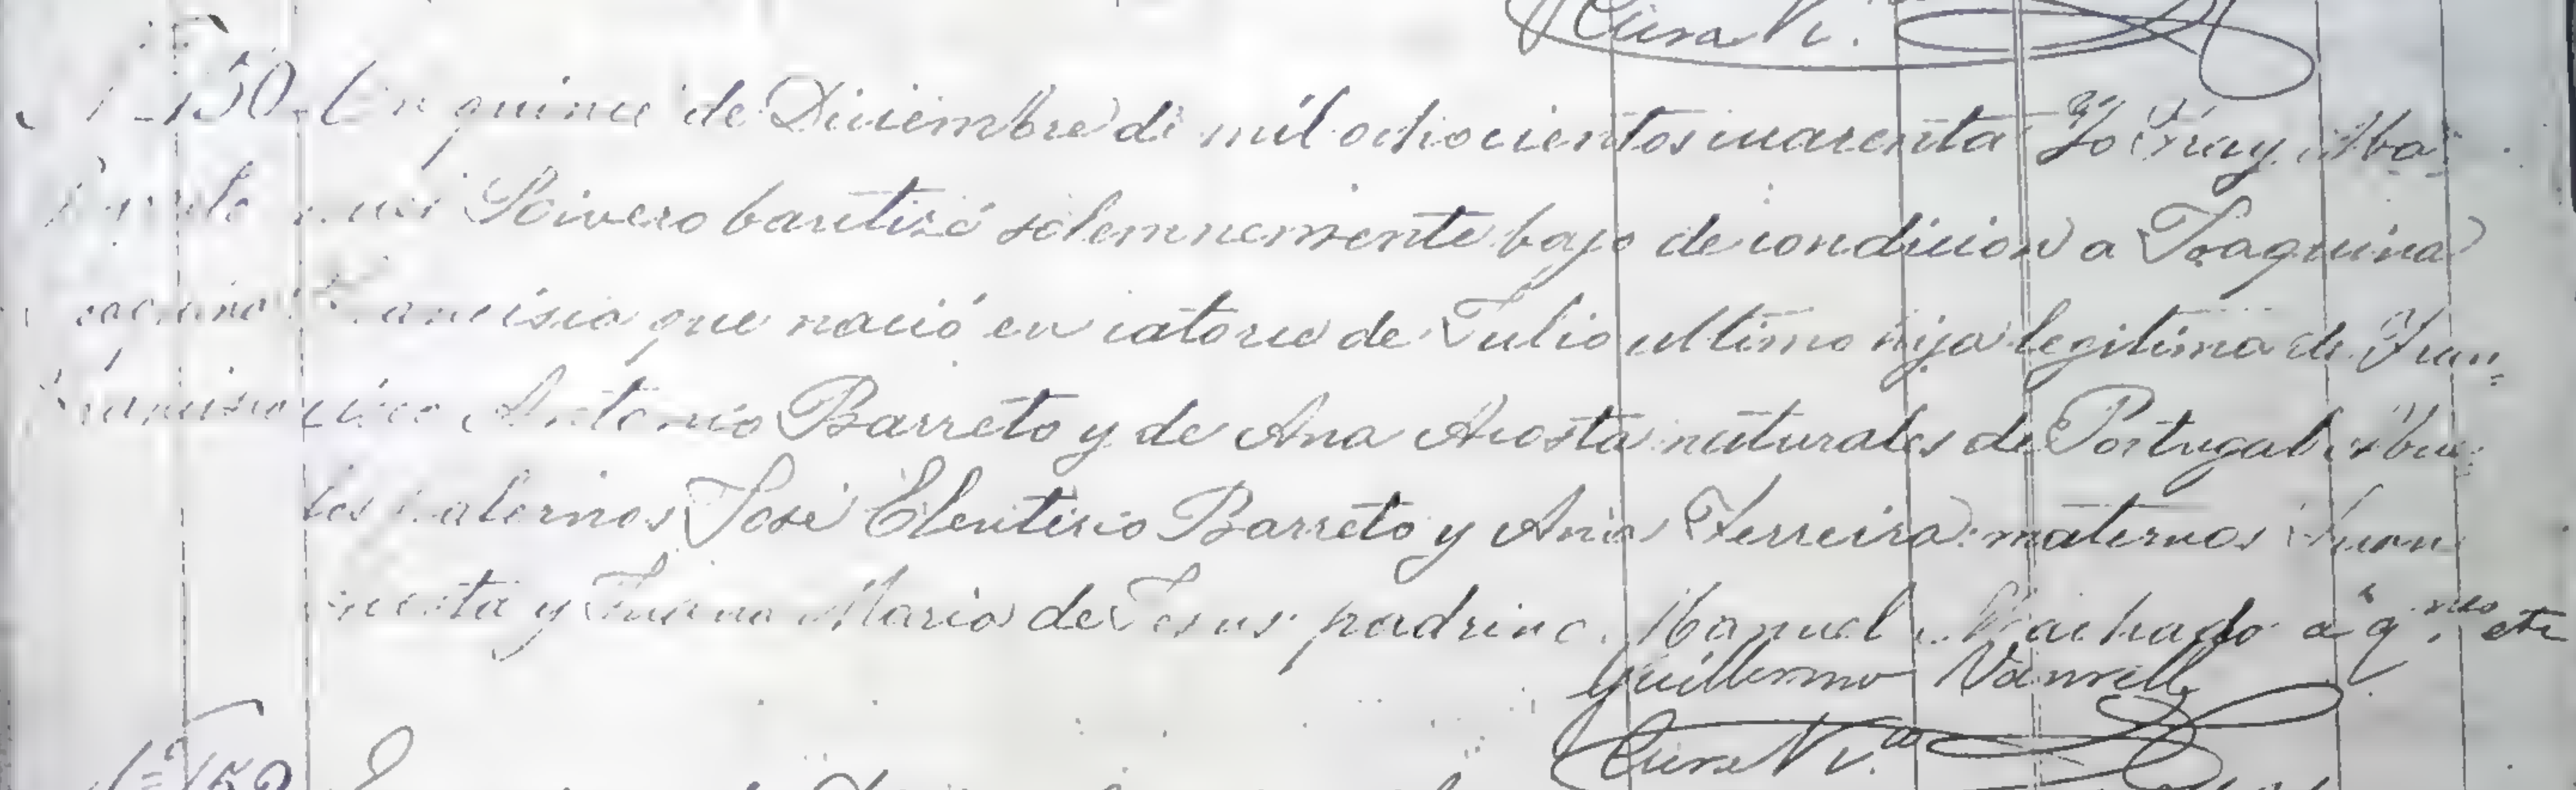 Cura Vi.
150 En quince de Diciembre de mil ochocientos cuarenta Yo Fray Ma
Rivero bautizó solemnemente bajo de condicion a Joaquina
Francisca que nació en catorce de Julio ultimo hija legitima de Fran
Francisca cisco Antonio Barreto y de Ana Acosta naturales de Portugal Abue
los paternos José Eleuterio Barreto y Ana Ferreira: maternos Juan
Acosta y Juana Maria de Jesus: padrino Manuel Machado á q.nes etc
Guillermo Vanrell
Cura Vi.co